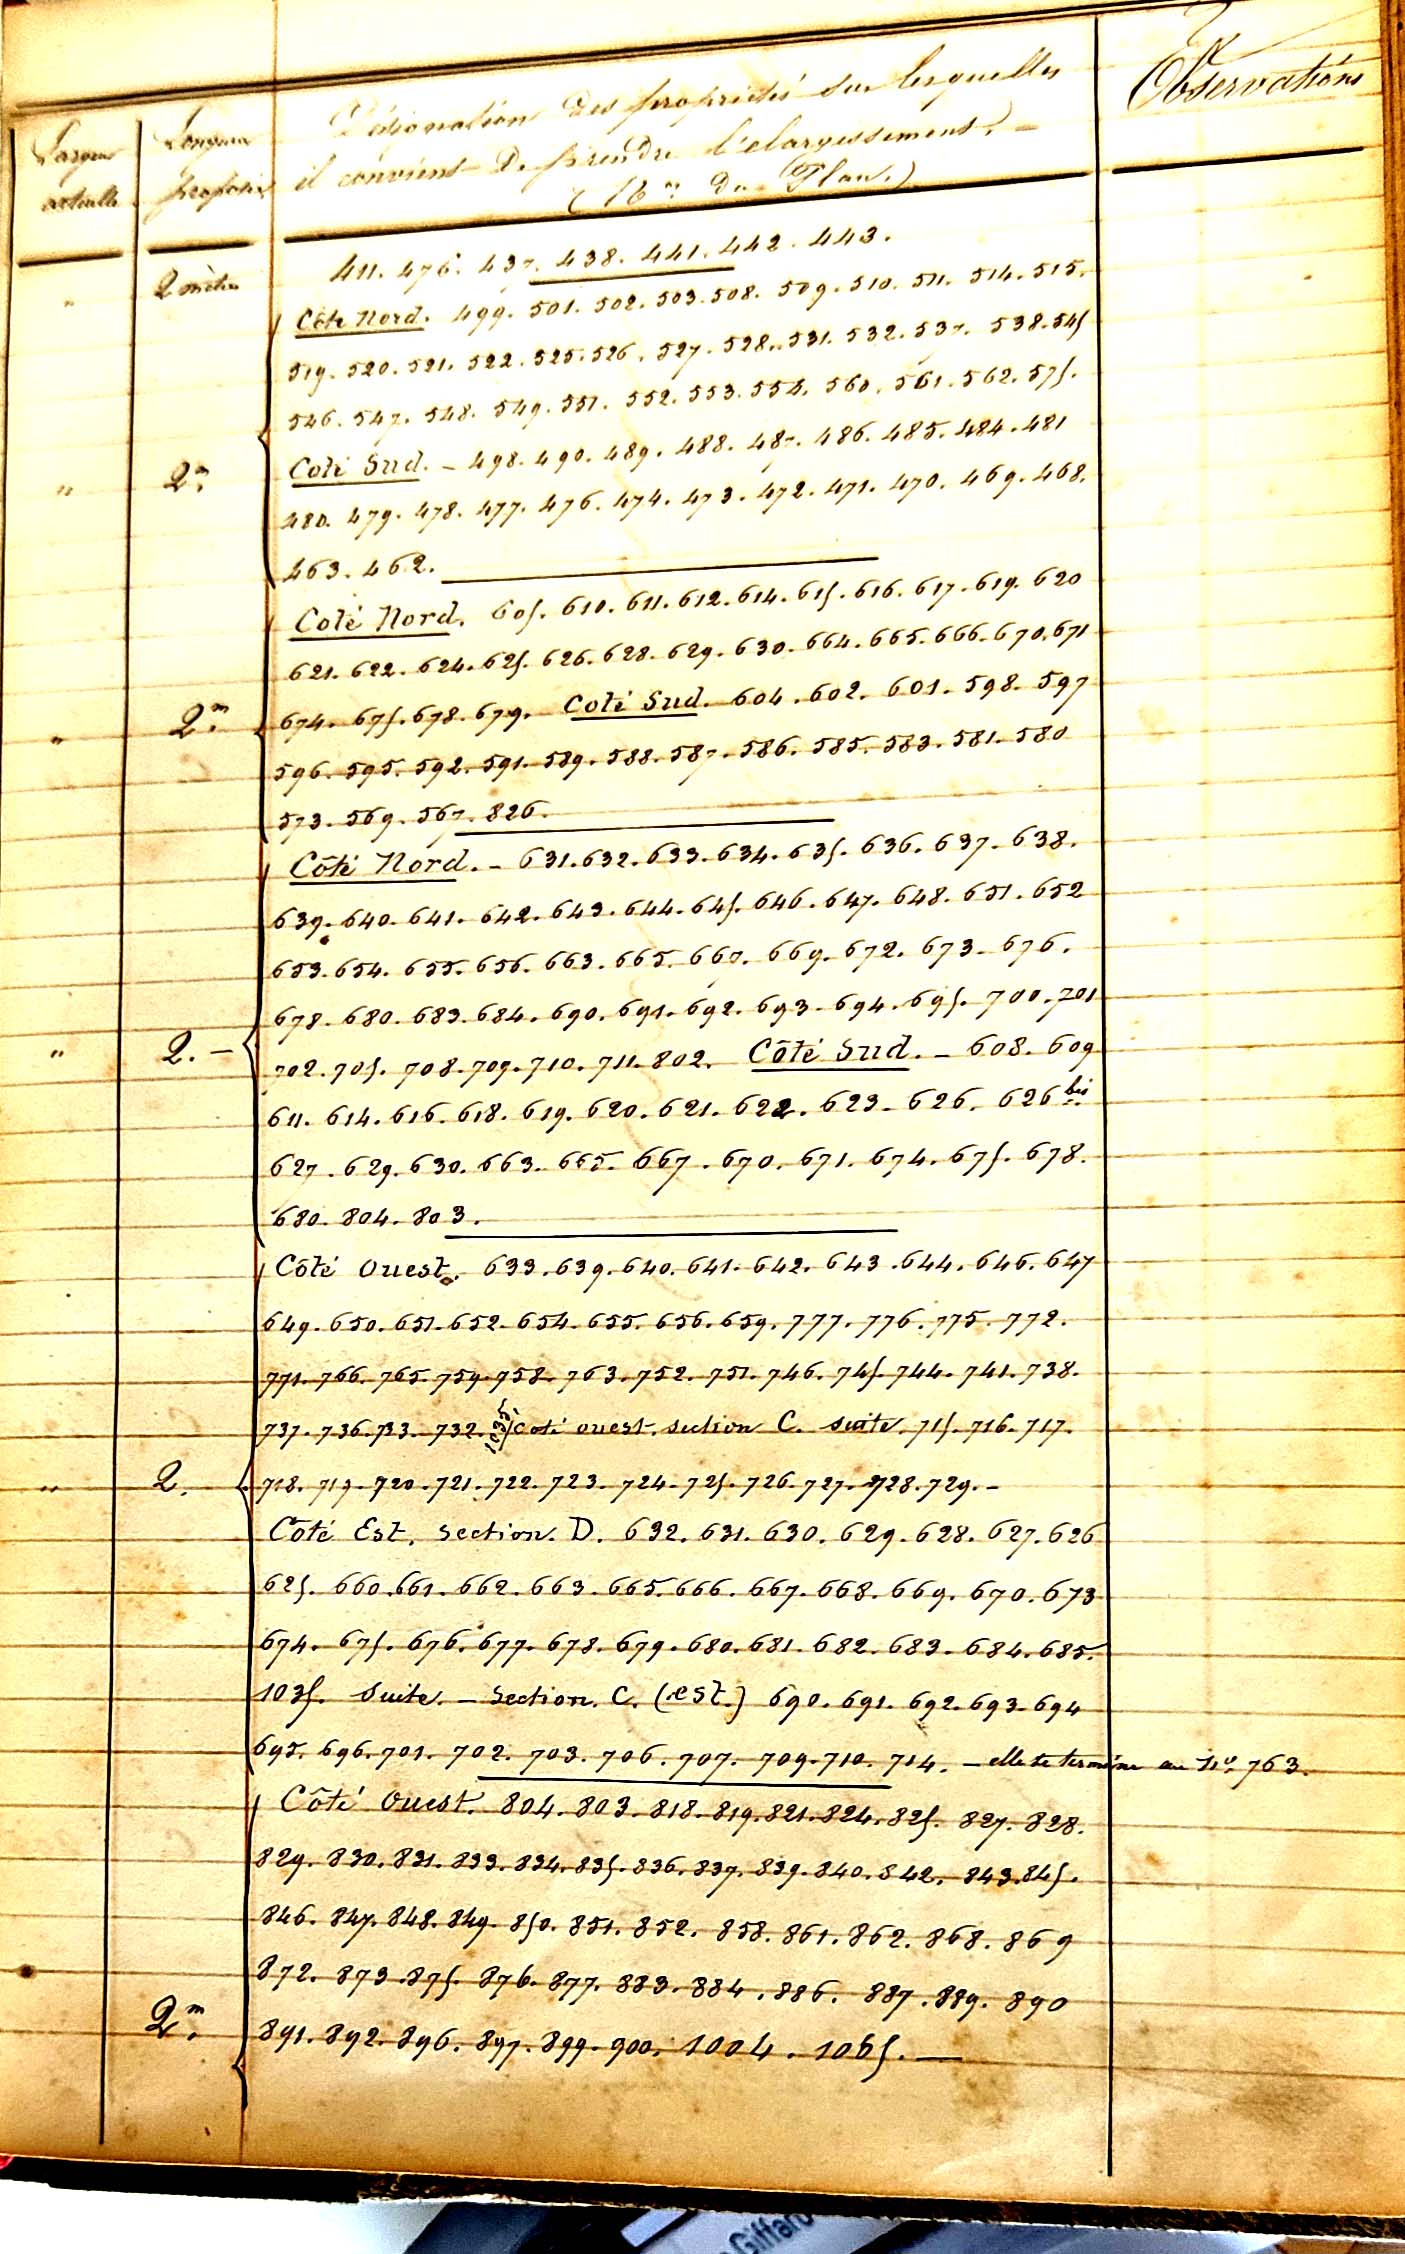 Largeur actuelle
Longueur proposée
Désignation des propriétés sur lesquelles
il convient de prendre l'élargissement. -
(Nos du Plan.)
Observations
" 2 mètres 411. 476. 437. 438. 441. 442. 443.
Côté Nord. 499. 501. 502. 503. 508. 509. 510. 511. 514. 515.
519. 520. 521. 522. 525. 526. 527. 528. 531. 532. 537. 538. 545
546. 547. 548. 549. 551. 552. 553. 554. 560. 561. 562. 575.
" 2m. Coté Sud. - 498. 490. 489. 488. 487. 486. 485. 484. 481
480. 479. 478. 477. 476. 474. 473. 472. 471. 470. 469. 468.
463. 462.
Coté Nord. 605. 610. 611. 612. 614. 615. 616. 617. 619. 620
621. 622. 624. 625. 626. 628. 629. 630. 664. 665. 666. 670. 671
" 2m. 674. 675. 678. 679. Coté Sud. 604. 602. 601. 598. 597
596. 595. 592. 591. 589. 588. 587. 586. 585. 583. 581. 580
573. 569. 567. 826.
Côté Nord. - 631. 632. 633. 634. 635. 636. 637. 638.
639. 640. 641. 642. 643. 644. 645. 646. 647. 648. 651. 652
653. 654. 655. 656. 663. 665. 667. 669. 672. 673. 676.
678. 680. 683. 684. 690. 691. 692. 693. 694. 695. 700. 701
" 2. - 702. 705. 708. 709. 710. 711. 802. Côté Sud. - 608. 609
611. 614. 616. 618. 619. 620. 621. 622. 623. 626. 626 bis
627. 629. 630. 663. 665. 667. 670. 671. 674. 675. 678.
680. 804. 803.
Côté Ouest. 633. 639. 640. 641. 642. 643. 644. 646. 647
649. 650. 651. 652. 654. 655. 656. 659. 777. 776. 775. 772.
771. 766. 765. 759. 758. 763. 752. 751. 746. 745. 744. 741. 738.
737. 736. 733. 732. 1035. Coté ouest. section C. suite. 715. 716. 717.
" 2. 718. 719. 720. 721. 722. 723. 724. 725. 726. 727. 728. 729. -
Côté Est. section. D. 632. 631. 630. 629. 628. 627. 626
625. 660. 661. 662. 663. 665. 666. 667. 668. 669. 670. 673
674. 675. 676. 677. 678. 679. 680. 681. 682. 683. 684. 685.
1035. Suite. - Section. C. (est.) 690. 691. 692. 693. 694
695. 696. 701. 702. 703. 706. 707. 709. 710. 714. - elle se termine au No. 763.
Côté Ouest. 804. 803. 818. 819. 821. 824. 825. 827. 828.
829. 830. 831. 833. 834. 835. 836. 837. 839. 840. 842. 843. 845.
846. 847. 848. 849. 850. 851. 852. 858. 861. 862. 868. 869
872. 873. 875. 876. 877. 883. 884. 886. 887. 889. 890
2m. 891. 892. 896. 897. 899. 900. 1004. 1065. -
Giffard